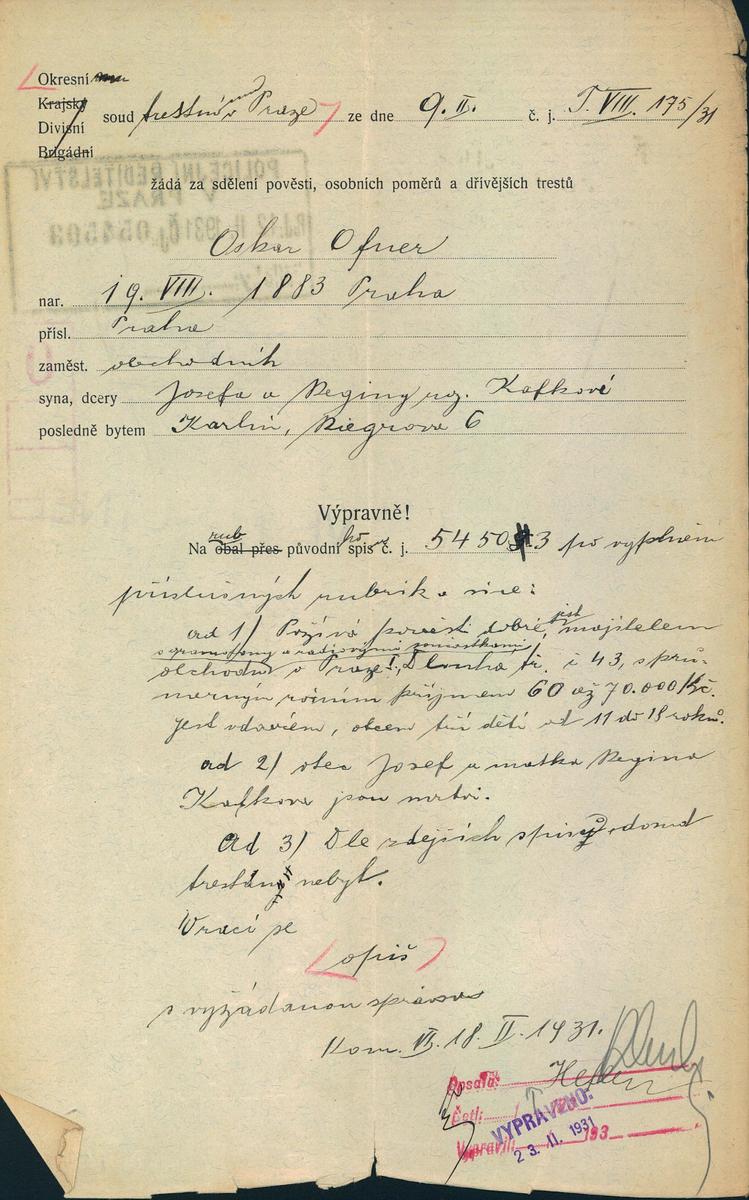 Okresní
Krajský
Divisní
Brigádní
soud trestní v Praze ze dne 9. II. č. j. T. VIII. 175/31
žádá za sdělení pověsti, osobních poměrů a dřívějších trestů
Oskar Ofner
nar. 19. VIII. 1883 Praha
přísl. Praha
zaměst. obchodník
syna, dcery Josefa a Reginy roz. Kafkové
posledně bytem Karlín, Riegrova 6
Výpravně!
rub
Na obal přes původní spis č. j. 54503 po vyplnění
příslušných rubrik a sice:
ad 1) Požívá pověsti dobré, jest majitelem
s gramofony a radiovými součástkami
obchodu v Praze I., Dlouhá tř. č 43, s prů-
měrným ročním příjmem 60 až 70.000 Kč.
Jest vdovcem, otcem tří dětí od 11 do 18 roků.
ad 2) otec Josef a matka Regina
Kafkova jsou mrtvi.
Ad 3) Dle zdejších spisů, dosud
trestán nebyl.
Vrací se
opiš
s vyžádanou správou
Kom. VI. 18. II. 1931.
Opsala:
Četl:
Vypravil: 193
VYPRAVENO:
23. II. 1931
POLICEJNÍ ŘEDITELSTVÍ
V PRAZE
12. II. 1931 Čj. 054503